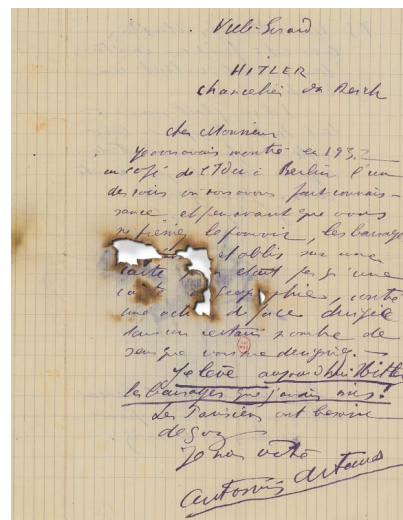 Ville-Evrard
HITLER
Chancelier du Reich
cher Monsieur
Je vous avais montré en 1932
au café de l'Ider à Berlin l'un
des soirs où nous avons fait connais-
sance et peu avant que vous
ne preniez le pouvoir, les barrages
établis sur une
carte qui n'était pas qu'une
carte de géographie, contre
une de force dirigée
dans un certain nombre de
sens que vous me désigniez. —
Je lève aujourd'hui Hitler
les barrages que j'avais mis!
Les Parisiens ont besoin
de gaz.
Je suis votre
Antonin Artaud